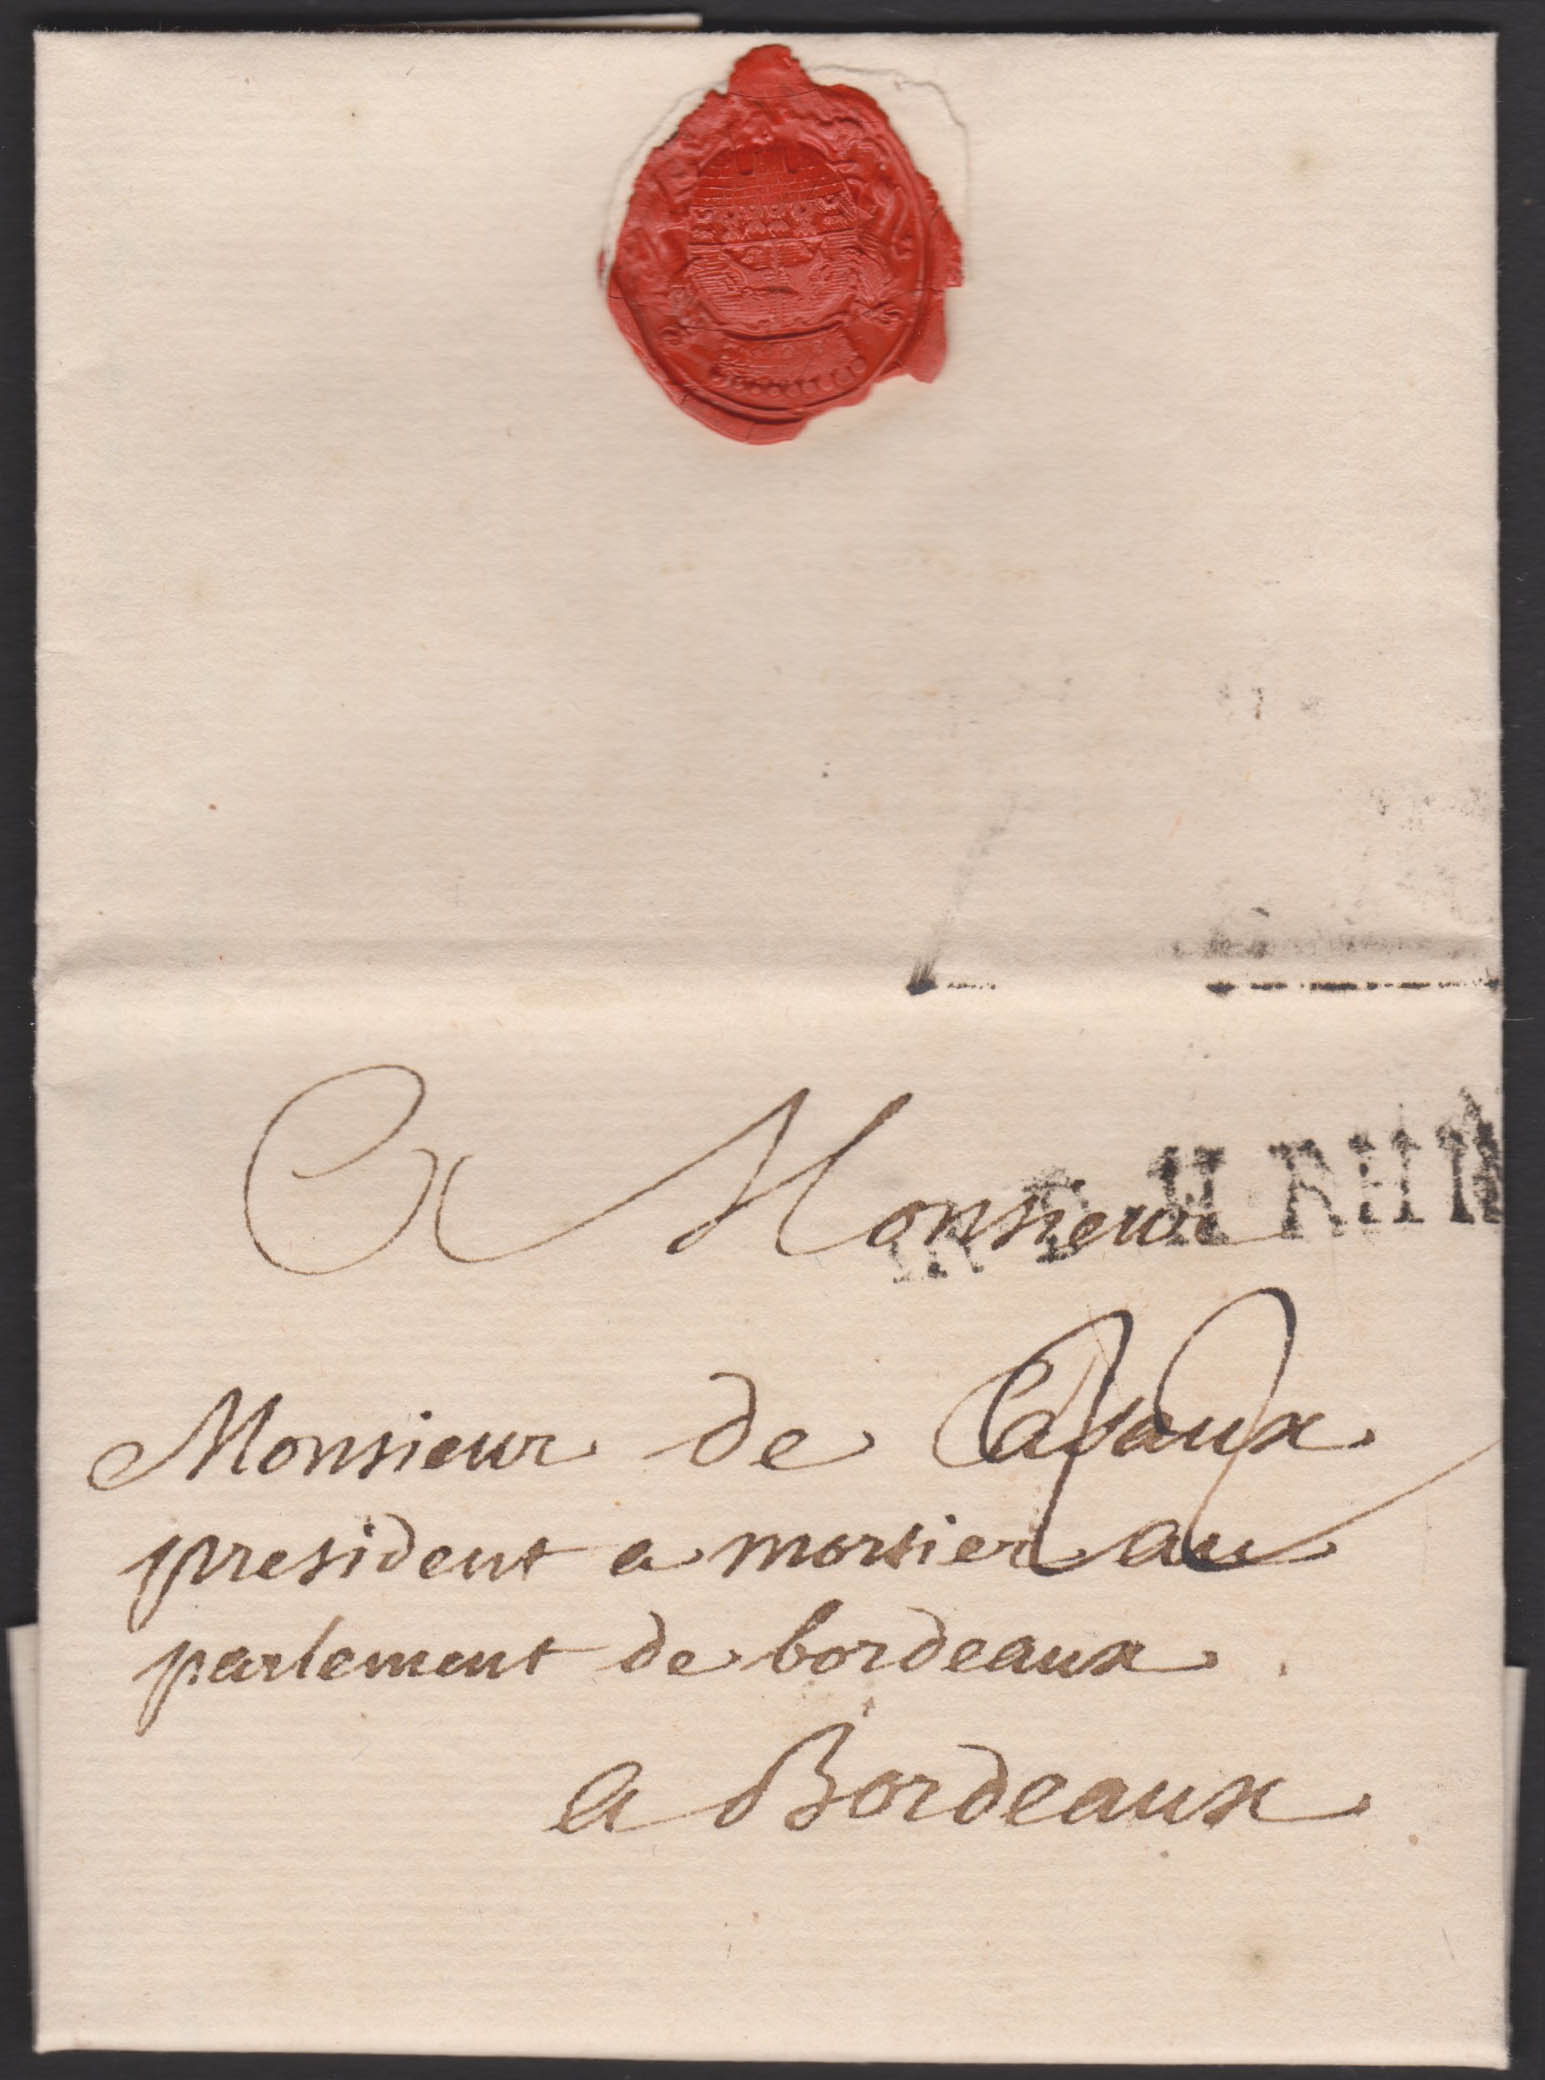 A Monsieur
AR D U RHIN
Monsieur de Casaux
president a mortier au
parlement de bordeaux
a Bordeaux